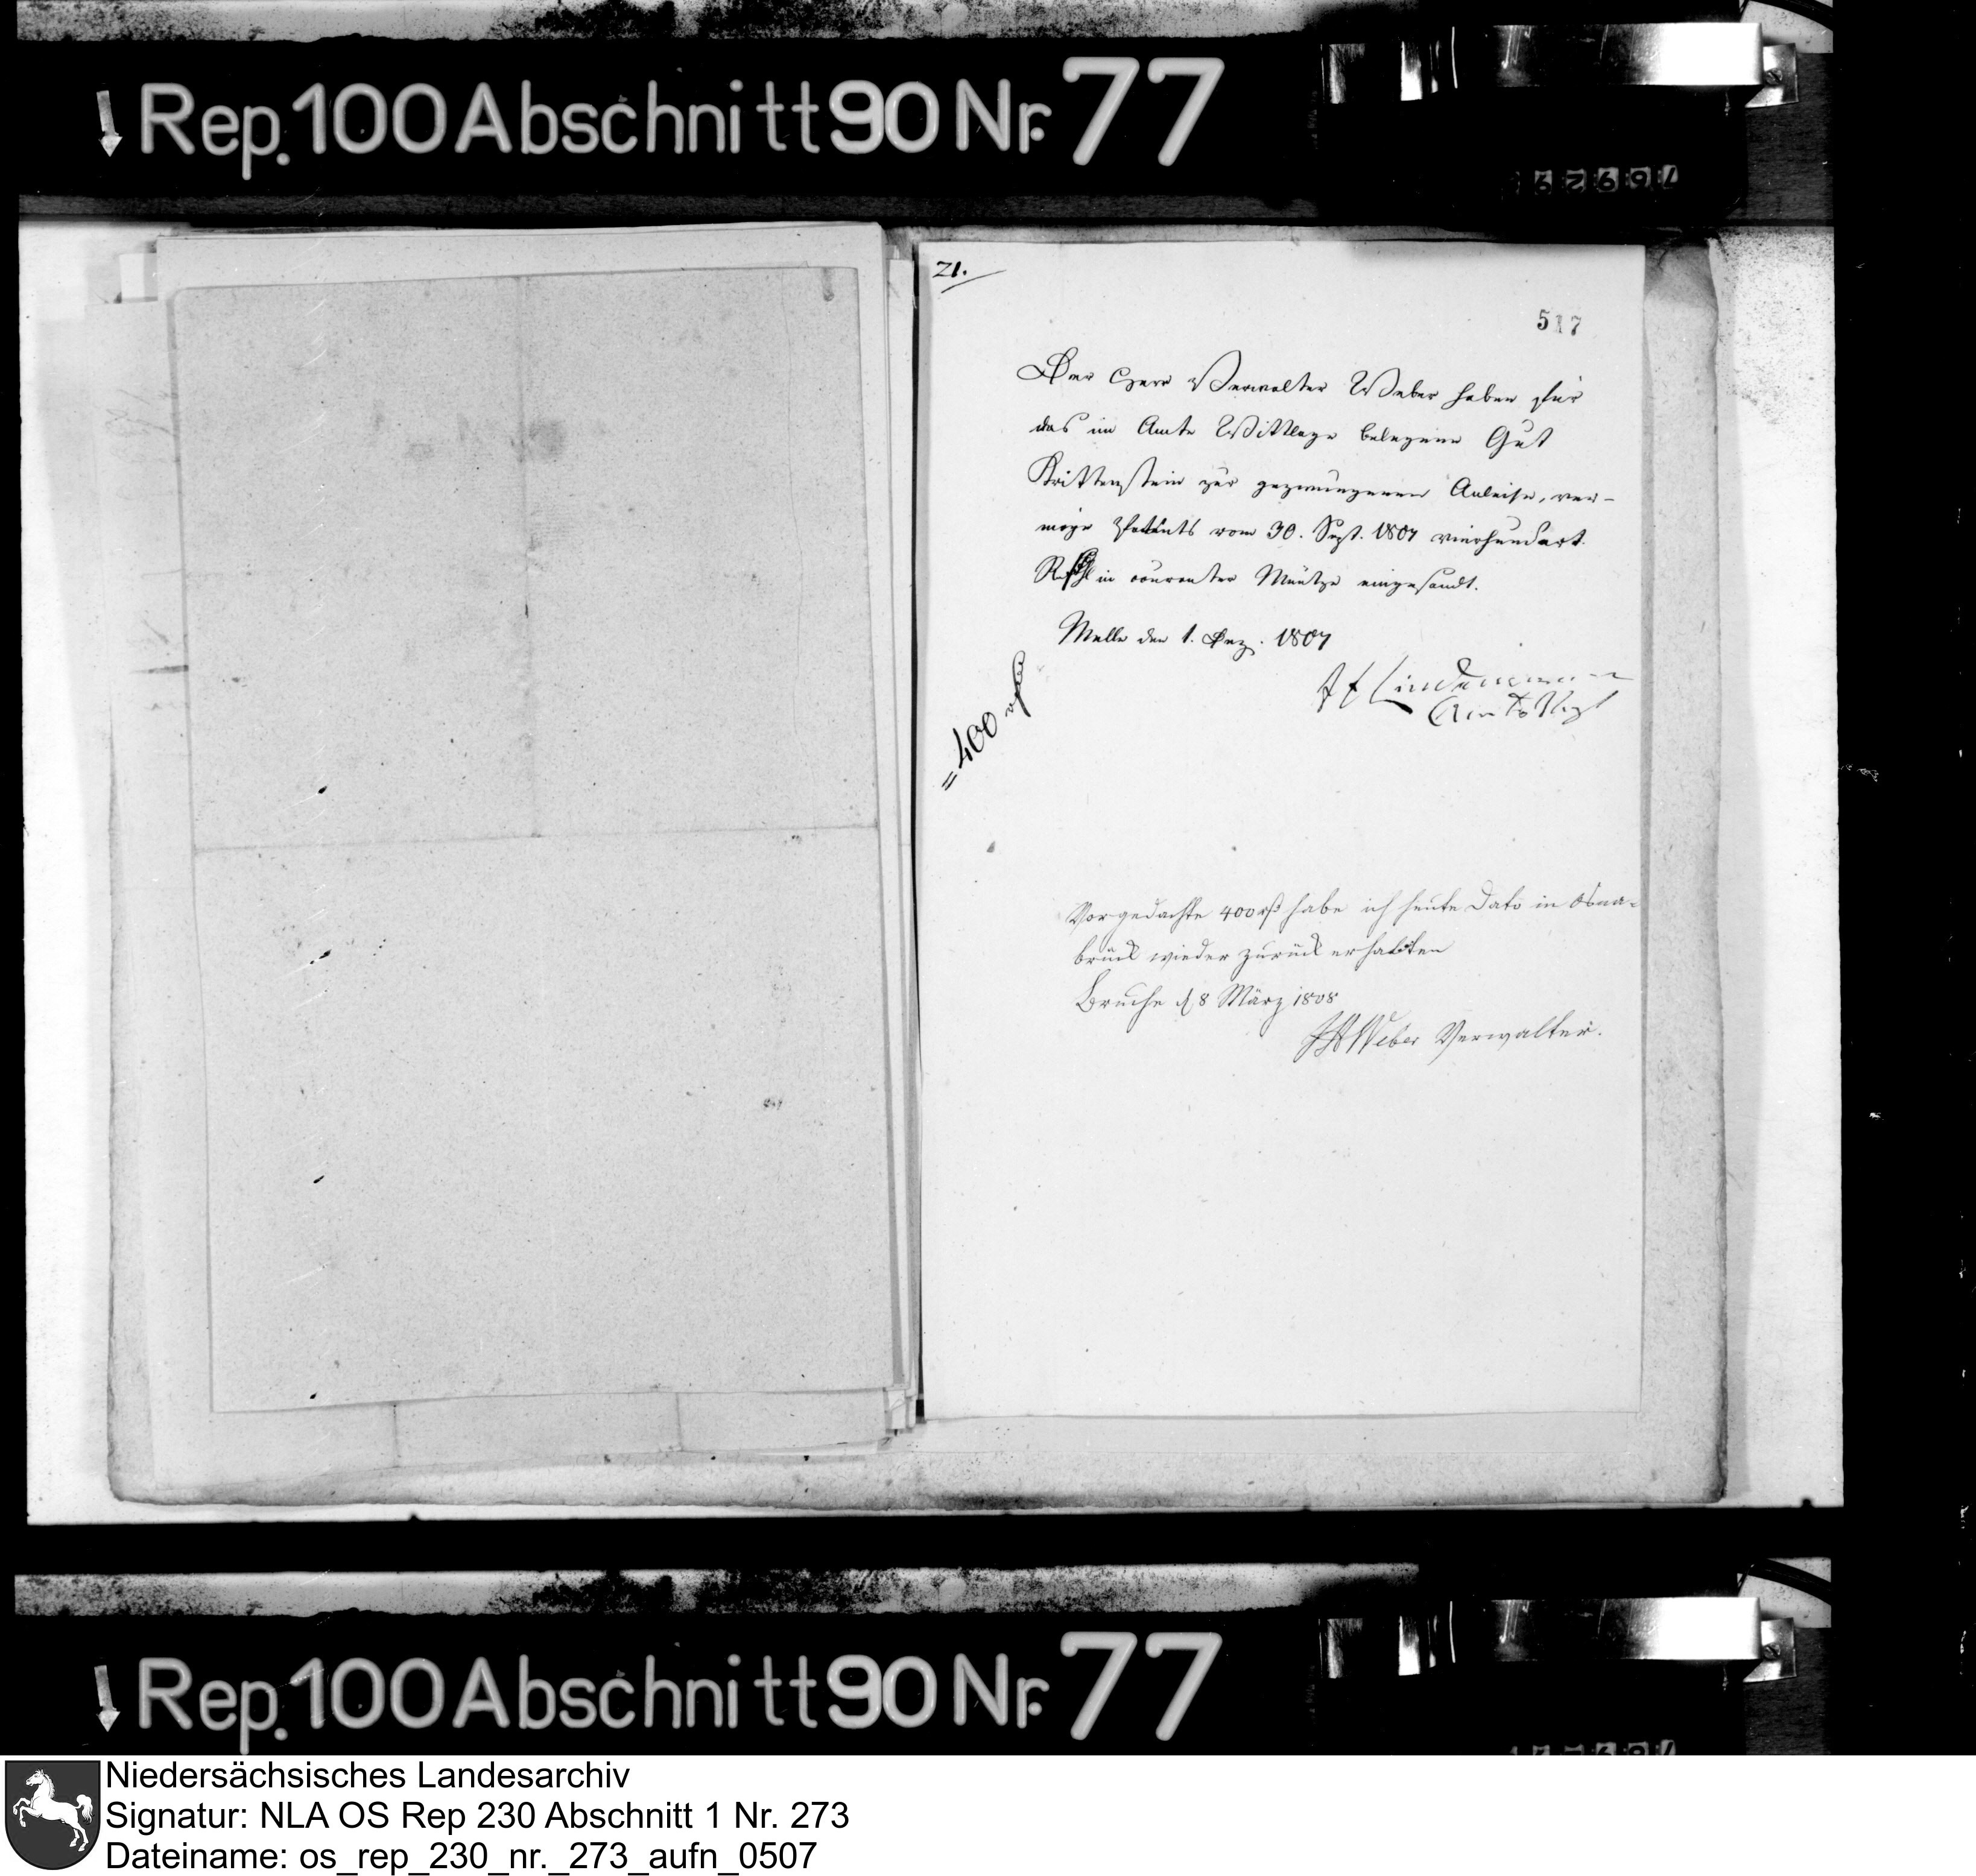 Rep. 100 Abschnitt 90 Nr. 77
21.
517
Der Herr Verwalter Weber haben für
das im Amte Wittlage belegene Gut
Krittenstein zur gezwungenen Anleihe, ver-
möge Patents vom 30. Sept. 1807 vierhundert
in couranter Müntze eingesandt.
Melle den 1. Dez. 1807
Lindemann
Amts Vogt
= 400
Vorgedachte 400 habe ich heute Dato in Osna-
brück wieder zurück erhalten
Bruche d 8 März 1808
Weber Verwalter.
Rep. 100 Abschnitt 90 Nr. 77
Niedersächsisches Landesarchiv
Signatur: NLA OS Rep 230 Abschnitt 1 Nr. 273
Dateiname: os_rep_230_nr._273_aufn_0507